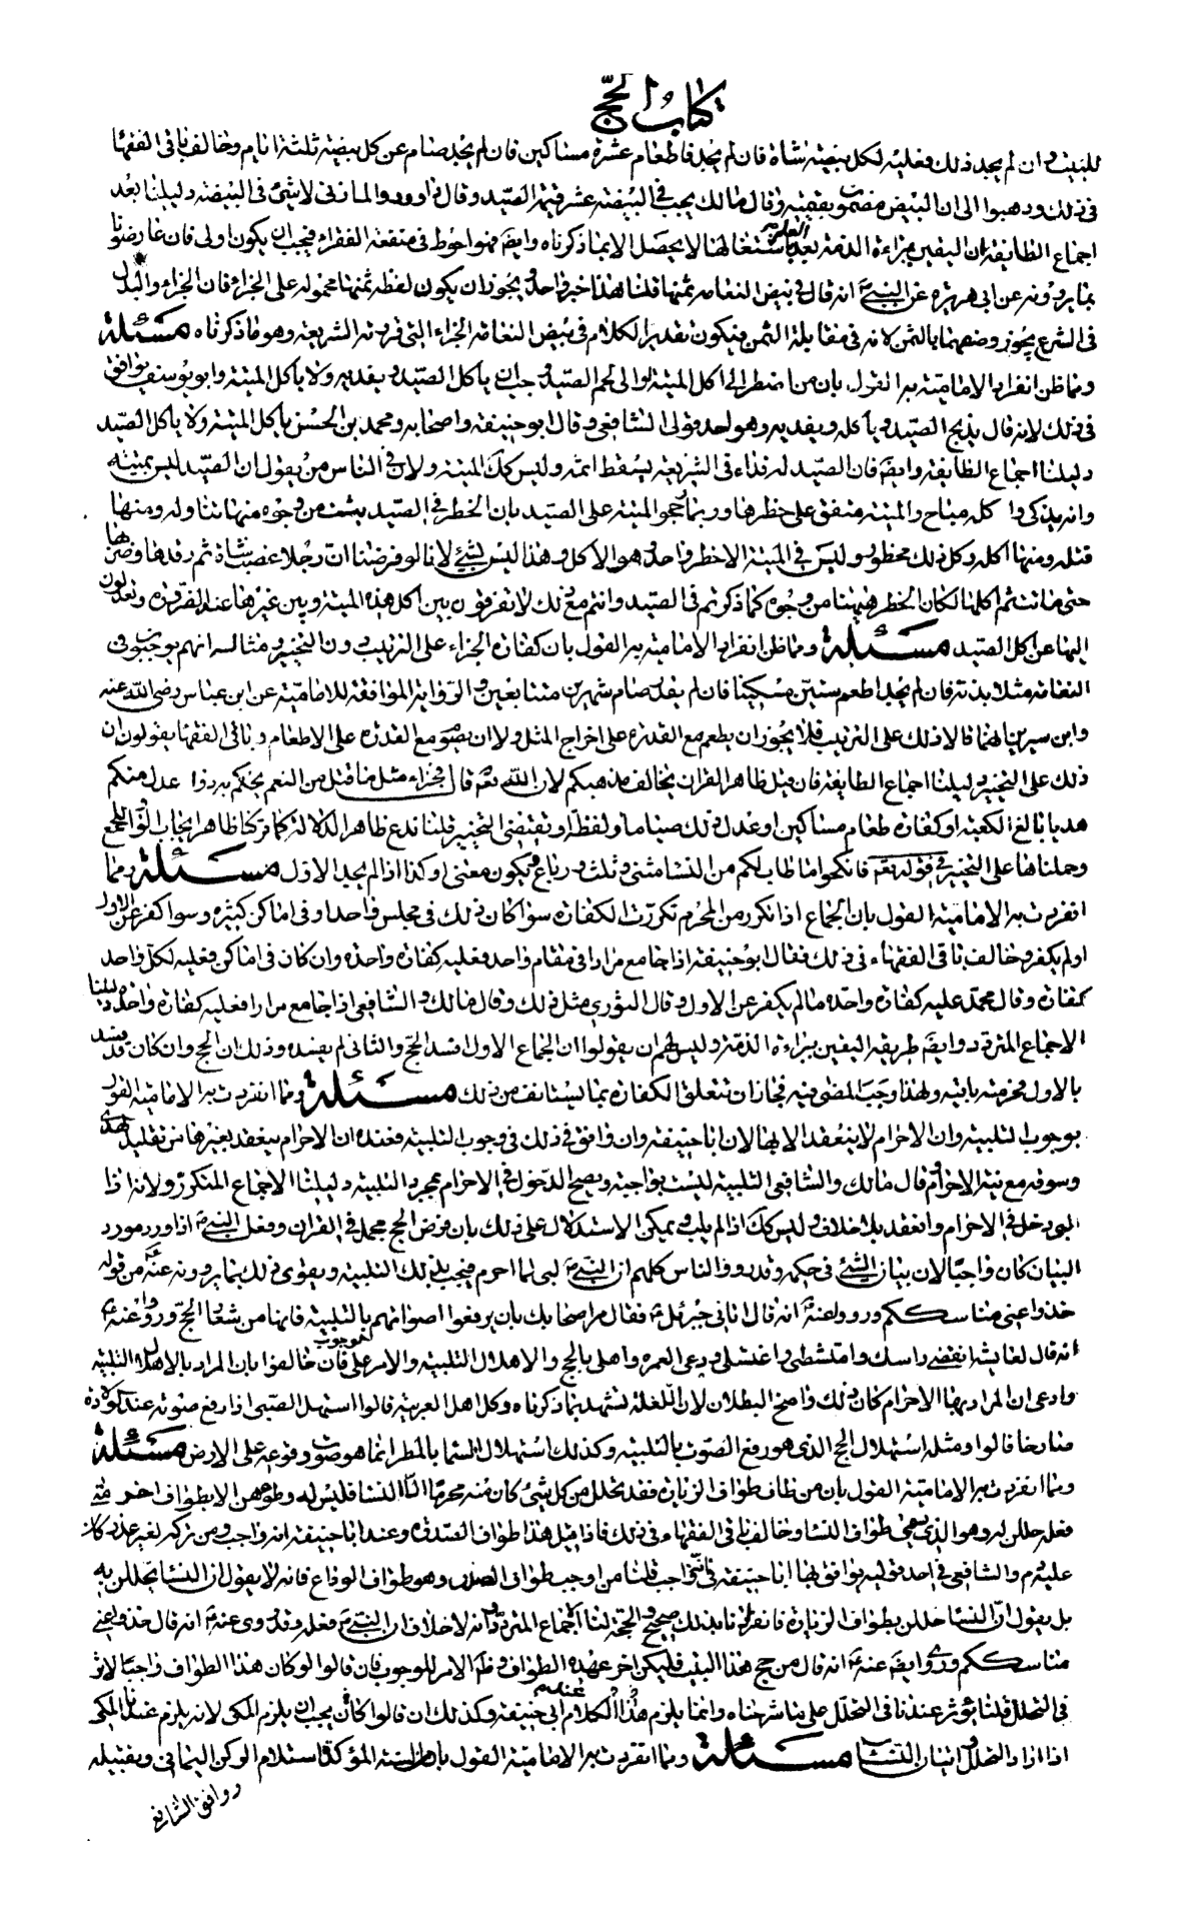 كتاب الحج
للبيت وان لم يجد ذلك فعليه لكل بيضة شاة فان لم يجد فاطعام عشرة مساكين فان لم يجد صام عن كل بيضة ثلثة ايام وخالف باقي الفقها
في ذلك وذهبوا الى ان البيض مضمون بقيمته وقال مالك يجب في البيضة عشر قيمة الصيد وقال داود والمازني لا شئ في البيضة دليلنا بعد
اجماع الطايفة ان اليقين ببراءة الذمة بعد العلم باشتغالها لا يحصل الا بما ذكرناه وايضا فهو احوط في منفعة الفقراء فيجب ان يكون اولى فان عارضونا
بما يروونه عن ابي هريرة عن النبي ص انه قال في بيض النعامة ثمنها قلنا هذا خبر واحد ويجوز ان يكون لفظة ثمنها محمولة على الجزاء فان الجزاء والبدل
في الشرع يجوز وصفهما بالثمن لانه في مقابلة الثمن فيكون تقدير الكلام في بيض النعامة الجزاء التي قررته الشريعة وهو ما ذكرناه مسئلة
ومما ظن انفراد الامامية به القول بان من اضطر الى اكل الميتة او الى لحم الصيد وجب ان ياكل الصيد ويفديه ولا ياكل الميتة وابو يوسف يوافق
في ذلك لانه قال يذبح الصيد وياكله ويفديه وهو احد قولي الشافعي وقال ابو حنيفة واصحابه ومحمد بن الحسن ياكل الميتة ولا ياكل الصيد
دليلنا اجماع الطايفة وايضا فان الصيد له فداء في الشريعة يسقط اثمه وليس كك الميتة ولان في الناس من يقول ان الصيد ليس بميتة
وانه يذكى واكله مباح والميتة متفق على حظرها وربما رجحوا الميتة على الصيد بان الحظر في الصيد يثبت من وجوه منها تناوله ومنها
قتله ومنها اكله وكل ذلك محظور وليس في الميتة الا حظر واحد وهو الاكل وهذا ليس بشئ لانا لو فرضنا ان رجلا غصب شاة ثم وقذها وضربها
حتى ماتت ثم اكلها لكان الحظر هيهنا من وجوه كما ذكرتم في الصيد وانتم مع ذلك لا تفرقون بين اكل هذه الميتة وبين غيرها عند الضرورة وتعدلون
اليها عن اكل الصيد مسئلة ومما ظن انفراد الامامية به القول بان كفارة الجزاء على الترتيب دون التخيير ومثاله انهم يوجبون في
النعامة مثلا بدنة فان لم يجد اطعم ستين مسكينا فان لم يقدر صام شهرين متتابعين والرواية الموافقة للامامية عن ابن عباس رضي الله عنه
وابن سيرين انهما قالا ذلك على الترتيب فلا يجوز ان يطعم مع القدرة على اخراج المثل ولا ان يصوم مع القدرة على الاطعام وباقي الفقها يقولون ان
ذلك على التخيير دليلنا اجماع الطايفة فان قيل ظاهر القران يخالف مذهبكم لان الله تعم قال فجزاء مثل ما قتل من النعم يحكم به ذوا عدل منكم
هديا بالغ الكعبة او كفارة طعام مساكين او عدل ذلك صياما ولفظة او تقتضي التخيير قلنا ندع ظاهر الدلالة كما تركنا ظاهر ايجاب الواو للجمع
وحملناها على التخيير في قوله تعم فانكحوا ما طاب لكم من النسا مثنى وثلث ورباع فيكون معنى او كذا اذا لم يجد الاول مسئلة ومما
انفردت به الامامية القول بان الجماع اذا تكرر من المحرم تكررت الكفارة سوا كان ذلك في مجلس واحد او في اماكن كثيرة وسوا كفر عن الاول
او لم يكفر وخالف باقي الفقهاء في ذلك فقال ابو حنيفة اذا جامع مرارا في مقام واحد فعليه كفارة واحدة وان كان في اماكن فعليه لكل واحد
كفارة وقال محمد عليه كفارة واحدة ما لم يكفر عن الاول وقال الثوري مثل ذلك وقال مالك والشافعي اذا جامع مرارا فعليه كفارة واحدة دليلنا
الاجماع المتردد وايضا طريقة اليقين ببراءة الذمة وليس لهم ان يقولوا ان الجماع الاول افسد الحج والثاني لم يفسده وذلك ان الحج وان كان قد فسد
بالاول فحرمته باقية ولهذا وجب المضي فيه فجاز ان تتعلق الكفارة بما يستانف من ذلك مسئلة ومما انفردت به الامامية القول
بوجوب التلبية وان الاحرام لا ينعقد الا بها لان ابا حنيفة وان وافق في ذلك في وجوب التلبية فعنده ان الاحرام ينعقد بغيرها من تقليد الهدي
وسوقه مع نية الاحرام وقال مالك والشافعي التلبية ليست بواجبة ويصح الدخول في الاحرام بمجرد التلبية دليلنا الاجماع المتكرر ولانه اذا
لبى دخل في الاحرام وانعقد بلا خلاف وليس كك اذا لم يلب ويمكن الاستدلال على ذلك بان فرض الحج مجمل في القران وفعل النبي ص اذا ورد مورد
البيان كان واجبا لان بيان الشئ في حكمه وقد روى الناس كلهم ان النبي ص لبى لما احرم فيجب بذلك التلبية ويقوى ذلك بما يروونه عنه ع من قوله
خذوا عني مناسككم ورووا عنه ع انه قال اتاني جبرئيل ع فقال مر اصحابك بان يرفعوا اصواتهم بالتلبية فانها من شعار الحج ورووا عنه ع
انه قال لعايشة انقضي راسك وامتشطي واغتسلي ودعي العمرة واهلي بالحج والاهلال التلبية والامر على الوجوب فان خالفوا بان المراد بالاهلال التلبية
وادعى ان المراد بها الاحرام كان ذلك واضح البطلان لان اللغة تشهد بما ذكرناه وكل اهل العربية قالوا استهل الصبي اذا رفع صوته عند الولادة
صارخا قالوا ومثله استهلال الحج الذي هو رفع الصوت بالتلبية وكذلك استهلال السما بالمطر انما هو صوت وقوعه على الارض مسئلة
ومما انفردت به الامامية القول بان من طاف طواف الزيارة فقد تحلل من كل شئ كان منه محرما الا النسا فليس له وطؤهن الا بطواف اخر متى
فعله حللن له وهو الذي يسمى طواف النسا وخالف باقي الفقهاء في ذلك فاذا قيل هذا طواف الصدر وعند ابا حنيفة انه واجب ومن تركه لغير عذر كان
عليه دم والشافعي في احد قوليه يوافق ابا حنيفة في انه واجب قلنا من اوجب طواف الصدر وهو طواف الوداع فانه لا يقول ان النسا يحللن به
بل يقول ان النسا حللن بطواف الزيارة فانفرادنا بذلك صحيح والحجة لنا الاجماع المتردد وانه لا خلاف ان النبي ص فعله وقد روى عنه ع انه قال خذوا عني
مناسككم وروى ايضا عنه ع انه قال من حج هذا البيت فليكن اخر عهده الطواف وظاهر الامر للوجوب فان قالوا لو كان هذا الطواف واجبا لاثر
في التحلل قلنا يؤثر عندنا في التحلل على ما شرحناه وانما يلزم هذا الكلام ابي حنيفة وكذلك ان قالوا كان يجب ان يلزم المكي لانه يلزم عندنا المكي
اذا اراد التحلل واتيان النساء مسئلة ومما انفردت به الامامية القول بان من السنة المؤكدة استلام الركن اليماني وتقبيله
ووافق الشافعي